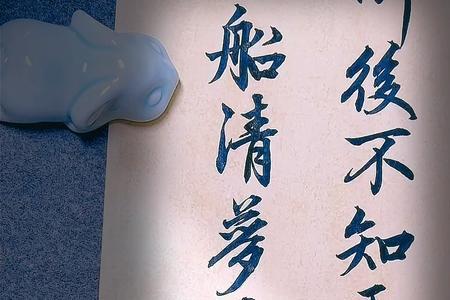 後不知
船清夢